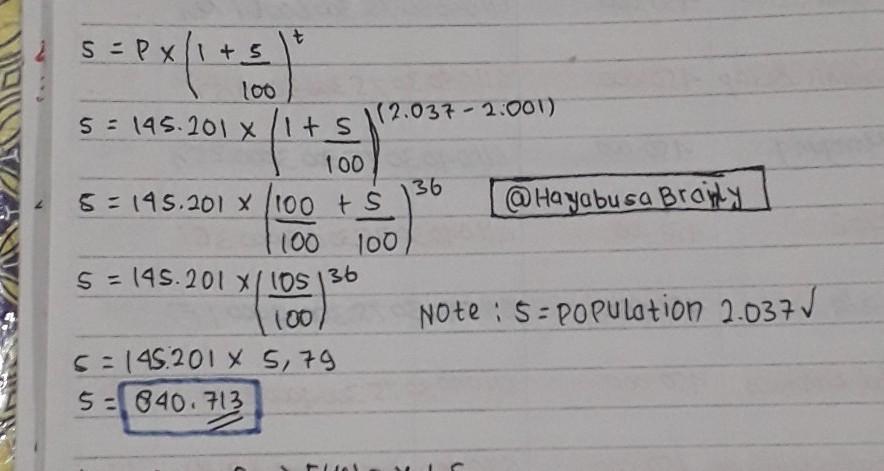 S = P x (1 + 5/100)^t
S = 145.201 x (1 + 5/100)^(2.037 - 2.001)
S = 145.201 x (100/100 + 5/100)^36
@HayabusaBrainly
S = 145.201 x (105/100)^36
Note : S = Population 2.037√
S = 145.201 x 5,79
S = 840.713